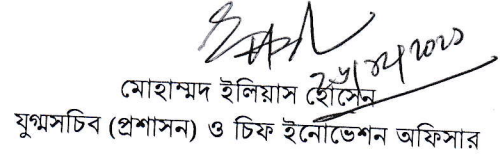 মোহাম্মদ ইলিয়াস হোসেন
যুগ্মসচিব (প্রশাসন) ও চিফ ইনোভেশন অফিসার